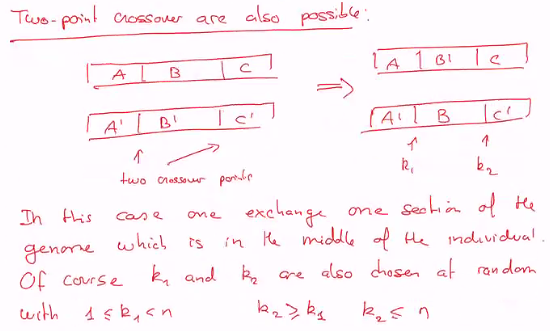 Two-point crossover are also possible:
A B C
A B' C
A' B' C'
A' B C'
two crossover points
k₁ k₂
In this case one exchange one section of the
genome which is in the middle of the individual.
Of course k₁ and k₂ are also chosen at random
with 1 ≤ k₁ < n k₂ ≥ k₁ k₂ ≤ n